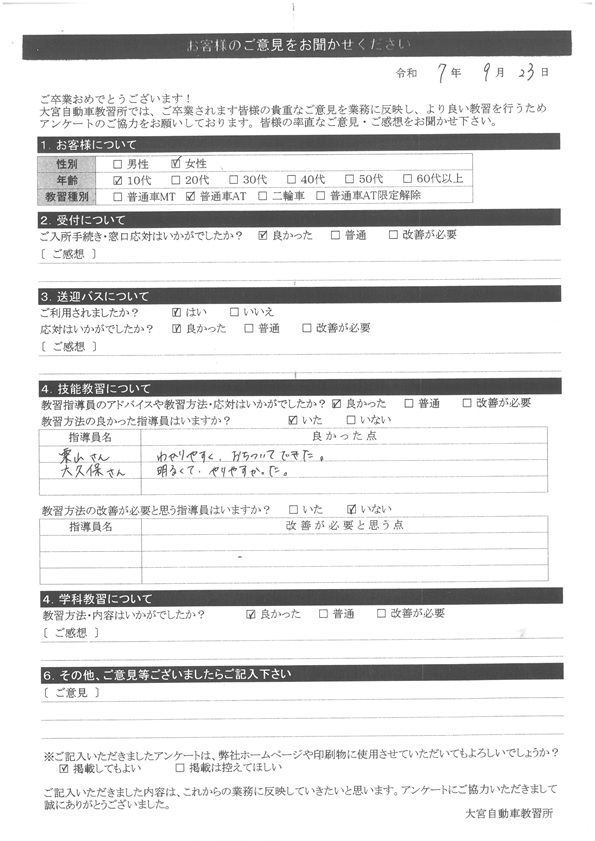 お客様のご意見をお聞かせください
令和 7年 9月 23日
ご卒業おめでとうございます!
大宮自動車教習所では、ご卒業されます皆様の貴重なご意見を業務に反映し、より良い教習を行うため
アンケートのご協力をお願いしております。皆様の率直なご意見・ご感想をお聞かせ下さい。
1. お客様について
性別 □ 男性 ☑ 女性
年齢 ☑ 10代 □ 20代 □ 30代 □ 40代 □ 50代 □ 60代以上
教習種別 □ 普通車MT ☑ 普通車AT □ 二輪車 □ 普通車AT限定解除
2. 受付について
ご入所手続き・窓口応対はいかがでしたか? ☑ 良かった □ 普通 □ 改善が必要
〔 ご感想 〕
3. 送迎バスについて
ご利用されましたか? ☑ はい □ いいえ
応対はいかがでしたか? ☑ 良かった □ 普通 □ 改善が必要
〔 ご感想 〕
4. 技能教習について
教習指導員のアドバイスや教習方法・応対はいかがでしたか? ☑ 良かった □ 普通 □ 改善が必要
教習方法の良かった指導員はいますか? ☑ いた □ いない
指導員名 良かった点
栗山さん わかりやすく、おちついてできた。
大久保さん 明るくて、やりやすかった。
教習方法の改善が必要と思う指導員はいますか? □ いた ☑ いない
指導員名 改善が必要と思う点
4. 学科教習について
教習方法・内容はいかがでしたか? ☑ 良かった □ 普通 □ 改善が必要
〔 ご感想 〕
6. その他、ご意見等ございましたらご記入下さい
〔 ご意見 〕
※ご記入いただきましたアンケートは、弊社ホームページや印刷物に使用させていただいてもよろしいでしょうか?
☑ 掲載してもよい □ 掲載は控えてほしい
ご記入いただきました内容は、これからの業務に反映していきたいと思います。アンケートにご協力いただきまして
誠にありがとうございました。
大宮自動車教習所